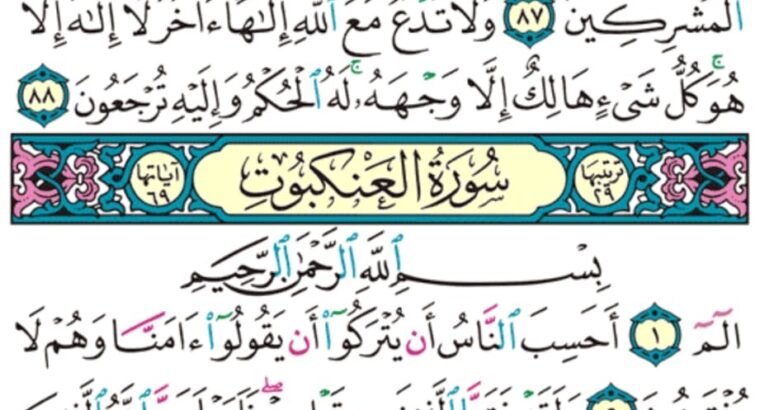 ٱلْمُشْرِكِينَ ٨٧ وَلَا تَدْعُ مَعَ ٱللَّهِ إِلَٰهًا ءَاخَرَ لَآ إِلَٰهَ إِلَّا
هُوَ ۚ كُلُّ شَىْءٍ هَالِكٌ إِلَّا وَجْهَهُۥ ۚ لَهُ ٱلْحُكْمُ وَإِلَيْهِ تُرْجَعُونَ ٨٨
ترتيبها ٢٩ سُورَةُ الْعَنْكَبُوتِ آياتها ٦٩
بِسْمِ ٱللَّهِ ٱلرَّحْمَٰنِ ٱلرَّحِيمِ
الٓمٓ ١ أَحَسِبَ ٱلنَّاسُ أَن يُتْرَكُوٓا۟ أَن يَقُولُوٓا۟ ءَامَنَّا وَهُمْ لَا